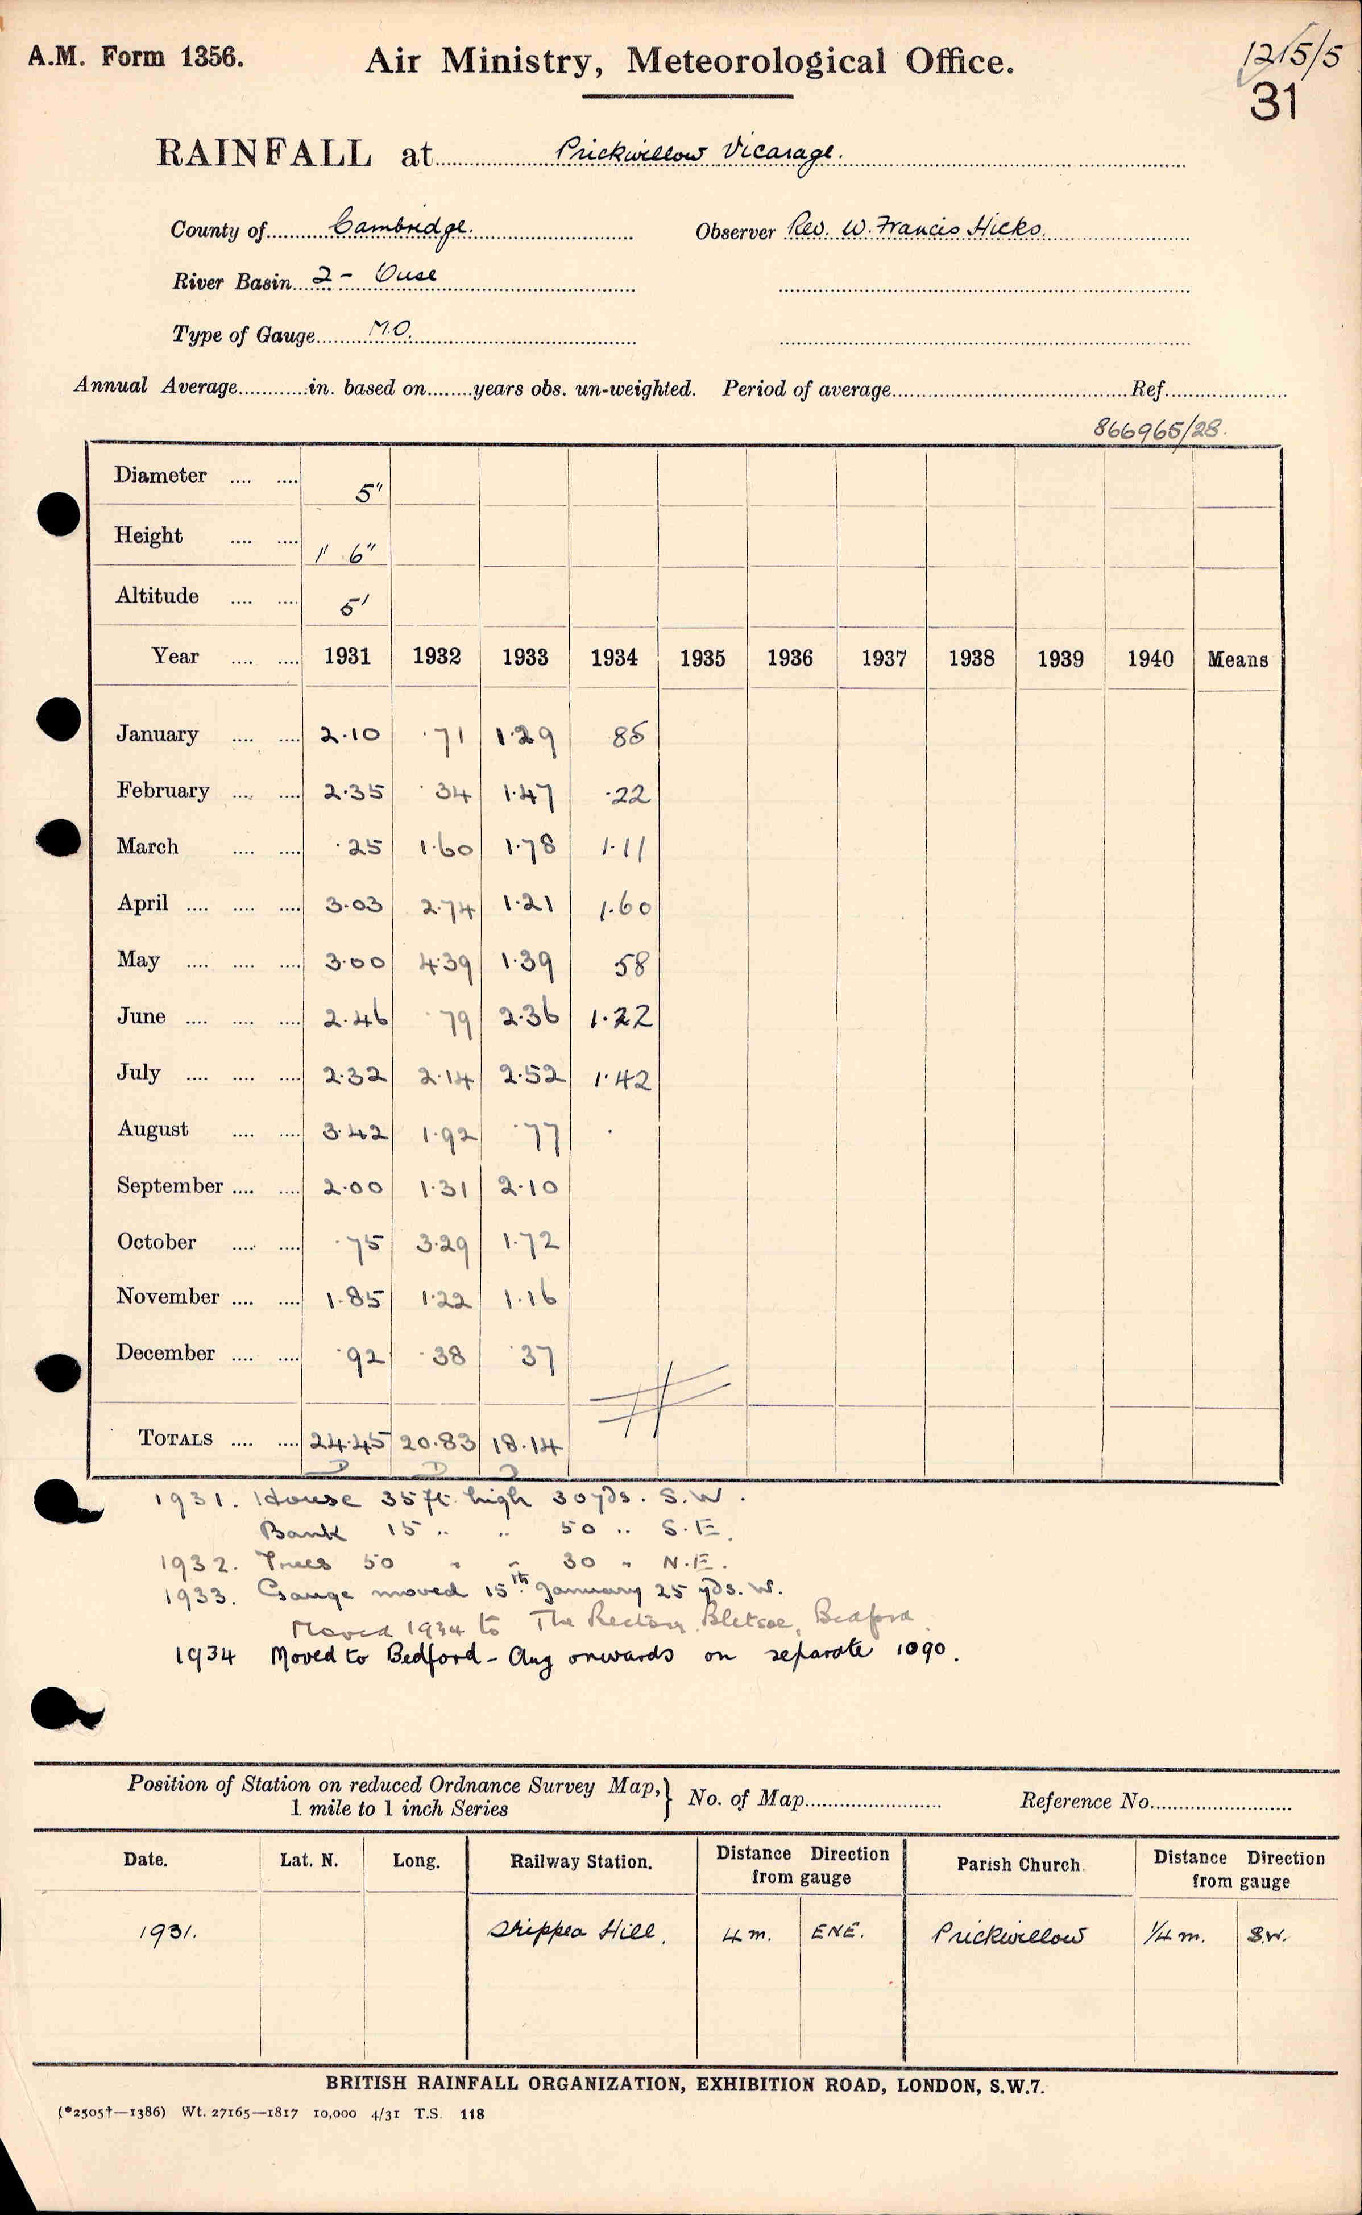 A.M. Form 1356.
Air Ministry, Meteorological Office.
1215/5
31
RAINFALL at Prickwillow Vicarage.
County of Cambridge. Observer Rev. W. Francis Hicks.
River Basin 2 - Ouse
Type of Gauge M.O.
Annual Average............in. based on........years obs. un-weighted. Period of average............Ref............
866965/28.
Diameter .... .... 5"
Height .... .... 1' 6"
Altitude .... .... 5'
Year .... .... 1931 1932 1933 1934 1935 1936 1937 1938 1939 1940 Means
January .... .... 2.10 .71 1.29 .85
February .... .... 2.35 .34 1.47 .22
March .... .... .25 1.60 1.78 1.11
April .... .... .... 3.03 2.74 1.21 1.60
May .... .... .... 3.00 4.39 1.39 .58
June .... .... .... 2.46 .79 2.36 1.22
July .... .... .... 2.32 2.14 2.52 1.42
August .... .... 3.42 1.92 .77 .
September .... .... 2.00 1.31 2.10
October .... .... .75 3.29 1.72
November .... .... 1.85 1.22 1.16
December .... .... .92 .38 .37
TOTALS .... .... 24.45 20.83 18.14
1931. House 35 ft. high 30 yds. S.W.
Bank 15 " " 50 " S.E.
1932. Trees 50 " " 30 " N.E.
1933. Gauge moved 15th January 25 yds. W.
Moved 1934 to The Rectory, Bletsoe, Bedford.
1934 Moved to Bedford - Aug onwards on separate 1090.
Position of Station on reduced Ordnance Survey Map, 1 mile to 1 inch Series } No. of Map............ Reference No............
Date. Lat. N. Long. Railway Station. Distance Direction from gauge Parish Church. Distance Direction from gauge
1931. Shippea Hill. 4 m. ENE. Prickwillow 1/4 m. S.W.
BRITISH RAINFALL ORGANIZATION, EXHIBITION ROAD, LONDON, S.W.7.
(*2505†—1386) Wt. 27165—1817 10,000 4/31 T.S. 118